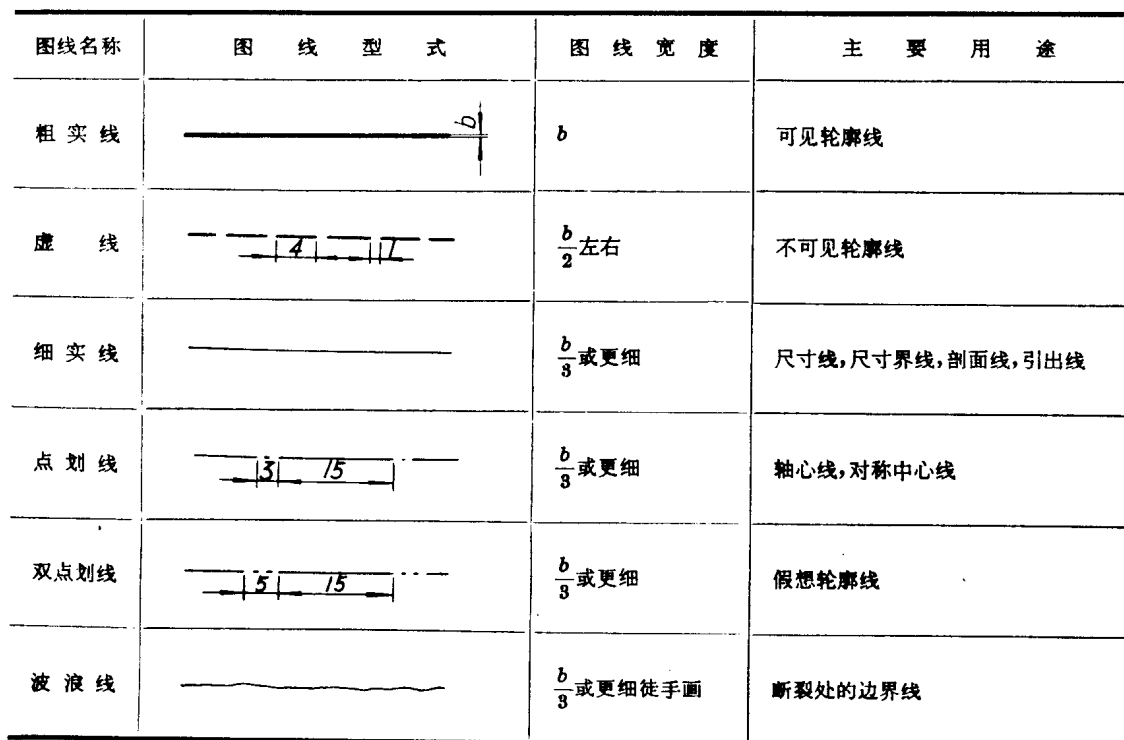 图线名称 图线型式 图线宽度 主要用途
粗实线 b b 可见轮廓线
虚线 4 1 b/2左右 不可见轮廓线
细实线 b/3或更细 尺寸线,尺寸界线,剖面线,引出线
点划线 3 15 b/3或更细 轴心线,对称中心线
双点划线 5 15 b/3或更细 假想轮廓线
波浪线 b/3或更细徒手画 断裂处的边界线